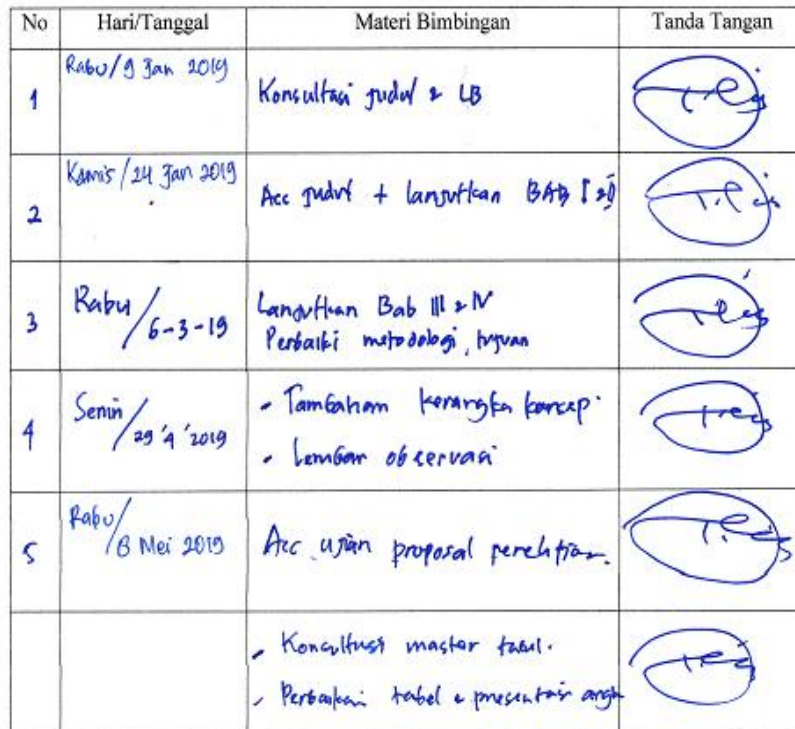 No Hari/Tanggal Materi Bimbingan Tanda Tangan
1 Rabu/9 Jan 2019 Konsultasi judul & LB
2 Kamis/24 Jan 2019 Acc judul + lanjutkan BAB I & II
3 Rabu/6-3-19 Lanjutkan Bab III & IV
Perbaiki metodologi, tujuan
4 Senin/29'4'2019 - Tambahan kerangka konsep.
- Lembar observasi
5 Rabu/8 Mei 2019 Acc ujian proposal penelitian.
- Konsultasi master tabel.
- Perbaikan tabel & presentasi angka